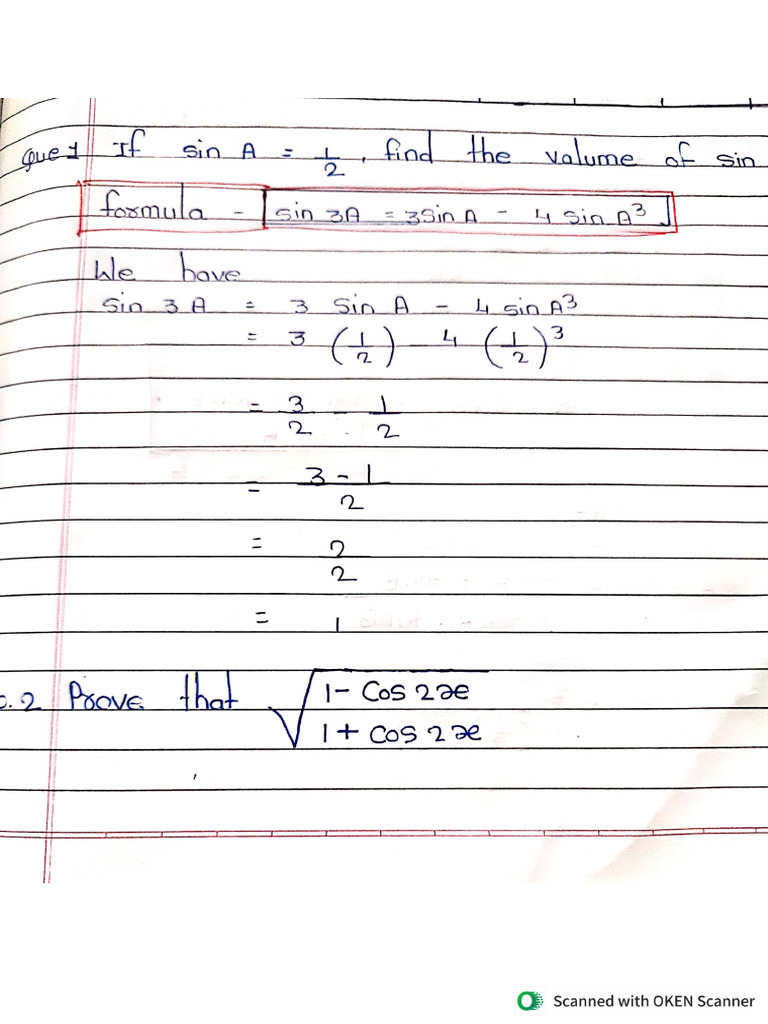 Que 1 If sin A = 1/2, find the valume of sin
formula - sin 3A = 3sin A - 4 sin A³
We have
sin 3 A = 3 sin A - 4 sin A³
= 3 (1/2) - 4 (1/2)³
= 3/2 - 1/2
= 3-1/2
= 2/2
= 1
.2 Prove that √1- cos 2x/1+ cos 2x
Scanned with OKEN Scanner